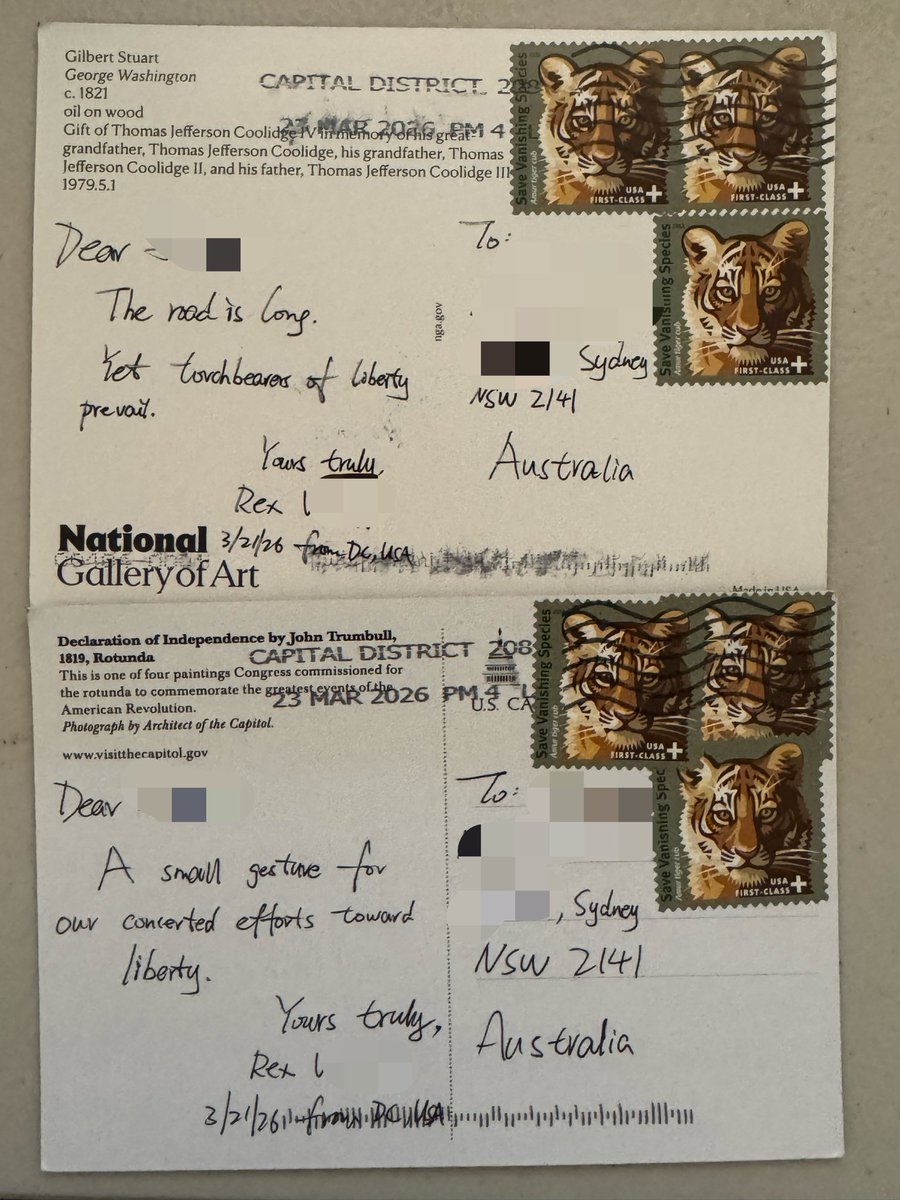 Gilbert Stuart
George Washington
c. 1821
oil on wood
Gift of Thomas Jefferson Coolidge IV in memory of his great-
grandfather, Thomas Jefferson Coolidge, his grandfather, Thomas
Jefferson Coolidge II, and his father, Thomas Jefferson Coolidge III
1979.5.1
CAPITAL DISTRICT 208
23 MAR 2026 PM 4 L
Save Vanishing Species
Amur tiger cub
USA
FIRST-CLASS+
USA
FIRST-CLASS+
Save Vanishing Species
Amur tiger cub
USA
FIRST-CLASS+
Dear
The road is long.
Yet torchbearers of liberty
prevail.
Yours truly,
Rex
3/21/26 from DC, USA
National
Gallery of Art
nga.gov
To:
Sydney
NSW 2141
Australia
Made in USA
Declaration of Independence by John Trumbull,
1819, Rotunda
This is one of four paintings Congress commissioned for
the rotunda to commemorate the greatest events of the
American Revolution.
Photograph by Architect of the Capitol.
www.visitthecapitol.gov
CAPITAL DISTRICT 208
23 MAR 2026 PM 4 L
U.S. CA
Save Vanishing Species
Amur tiger cub
USA
FIRST-CLASS+
Save Vanishing Spec
Amur tiger cub
USA
FIRST-CLASS+
Dear
A small gesture for
our concerted efforts toward
liberty.
Yours truly,
Rex
3/21/26 from DC, USA
To:
, Sydney
NSW 2141
Australia